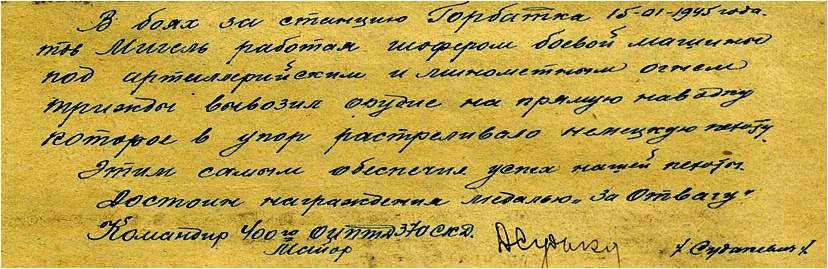 В боях за станцию Горбатка 15-01-1945 года.
тов Мигель работая шофером боевой машины
под артиллерийским и минометным огнем
трижды вывозил орудие на прямую наводку
которое в упор растреливало немецкую пехоту.
Этим самым обеспечил успех нашей пехоты.
Достоин награждения медалью „За Отвагу"
Командир 400го ОИПТД 370 СКД.
Майор